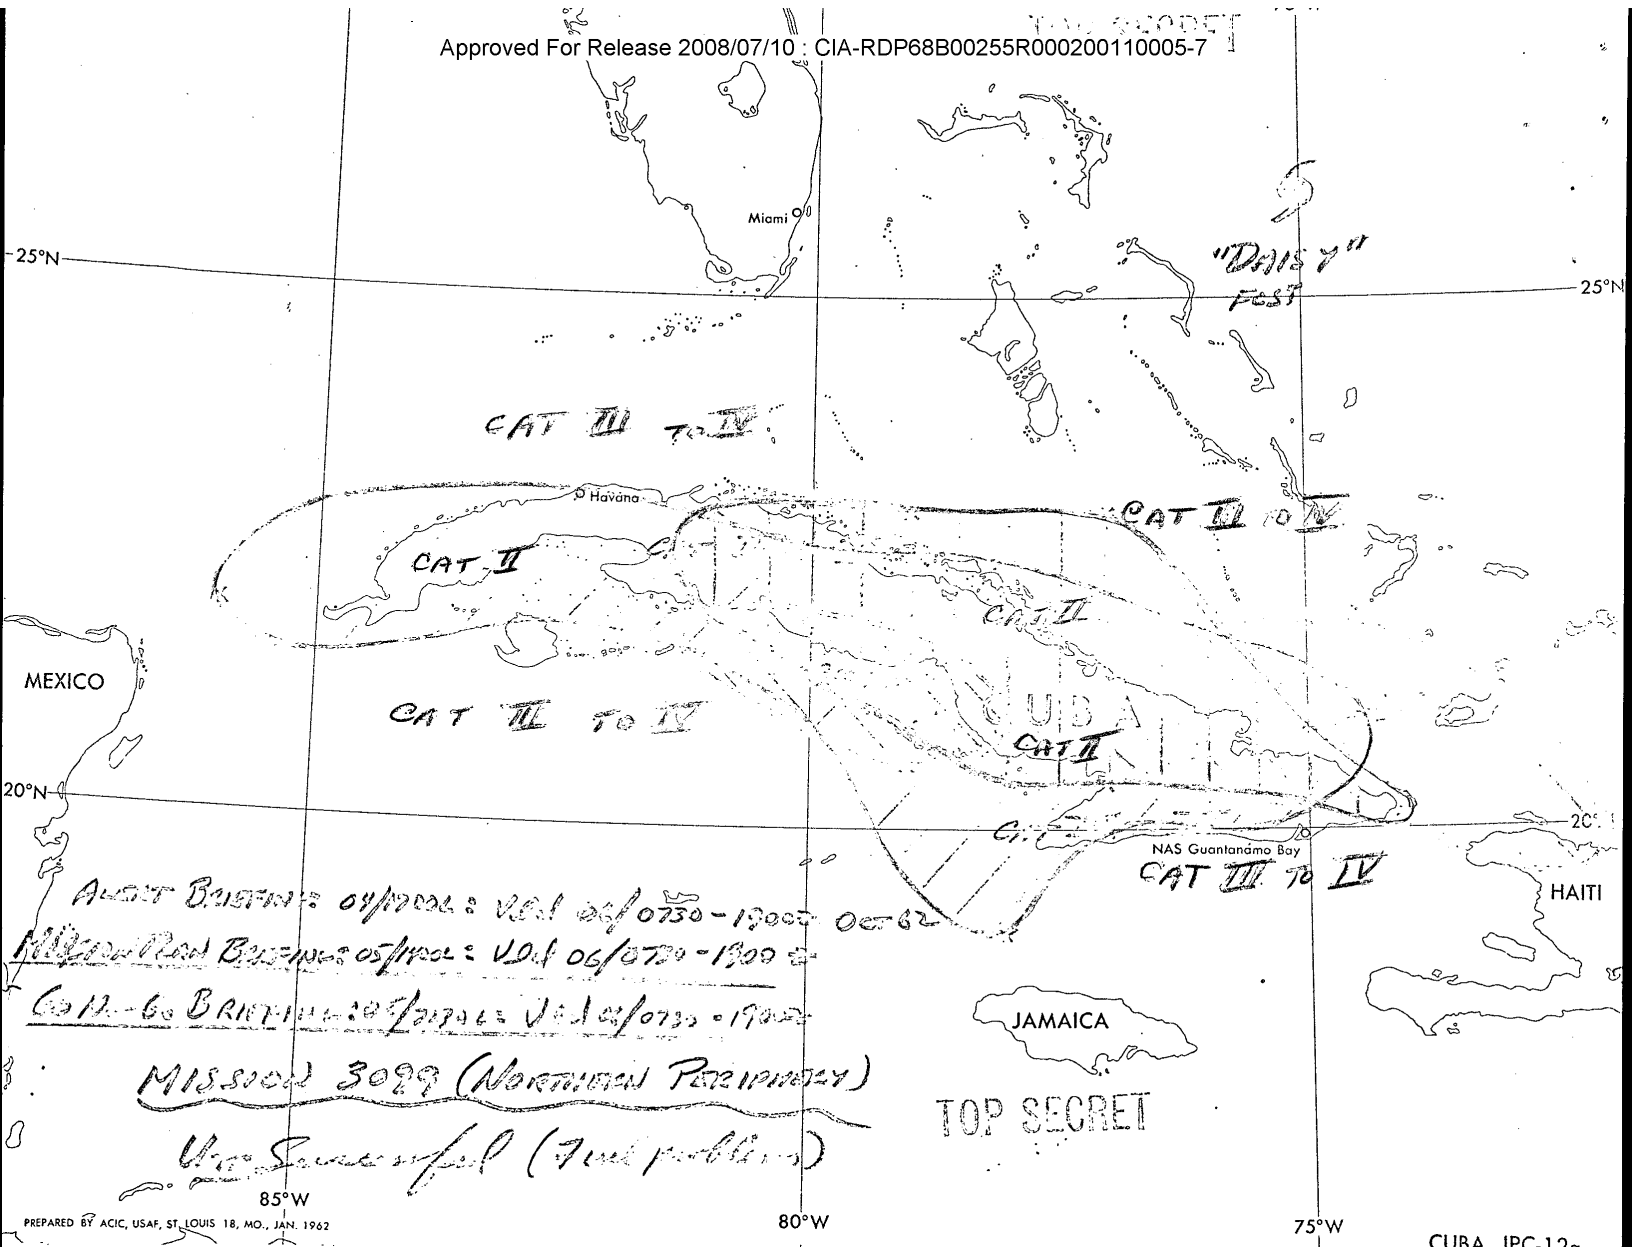 TOP SECRET
Approved For Release 2008/07/10 : CIA-RDP68B00255R000200110005-7
Miami
25°N
"DAISY"
FCST
25°N
CAT III TO IV
Havana
CAT III TO IV
CAT II
CAT II
MEXICO
CAT III TO IV
CUBA
CAT II
20°N
20°
NAS Guantanamo Bay
CAT III TO IV
HAITI
ALERT BRIEFING: : V.P.d 06/0730-1900Z OCT 62
MISSION PLAN BRIEFING: : 06/0730-1900Z
GO N-GO BRIEFING: /0730-1900Z
JAMAICA
MISSION 3099 (NORTHERN PERIPHERY)
TOP SECRET
UnSuccessful (Fuel problems)
85°W
80°W
75°W
PREPARED BY ACIC, USAF, ST. LOUIS 18, MO., JAN. 1962
CUBA JPC-12